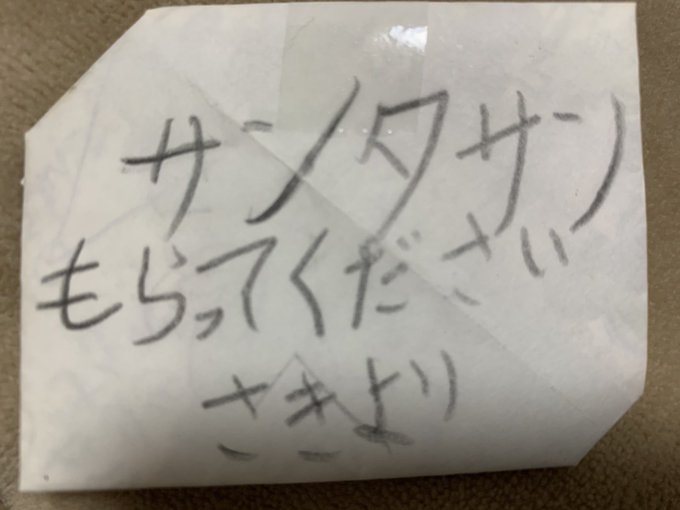 サンタサン
もらってください
さきより